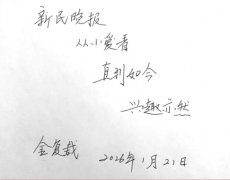 新民晚报
从小爱看
直到如今
兴趣亦然
金复载 2026年1月21日